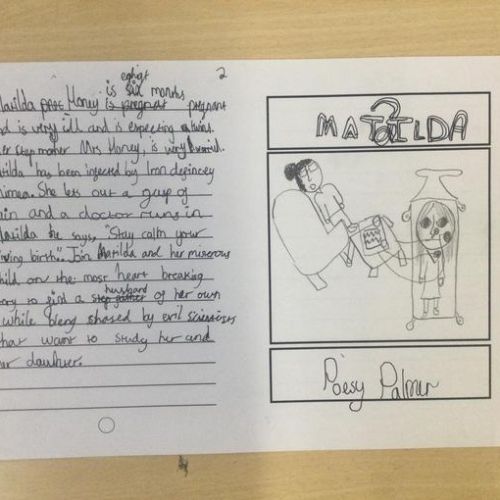 eghigt
2
is six months
Matilda Honey is pregnest pregnant
and is very ill and is expecting twins.
Her step mother Mrs Honey, is very
Matilda has been injected by Iron defincey
She lets out a gasp of
pain and a doctor runs in
Matilda he says, "Stay calm your
giving birth". Join Matilda and her
child on the most heart breaking
story to find a step father husband of her own
while being shased by evil scientists
that want to study her and
her daughter.
MATILDA
2
Poesy Palmer